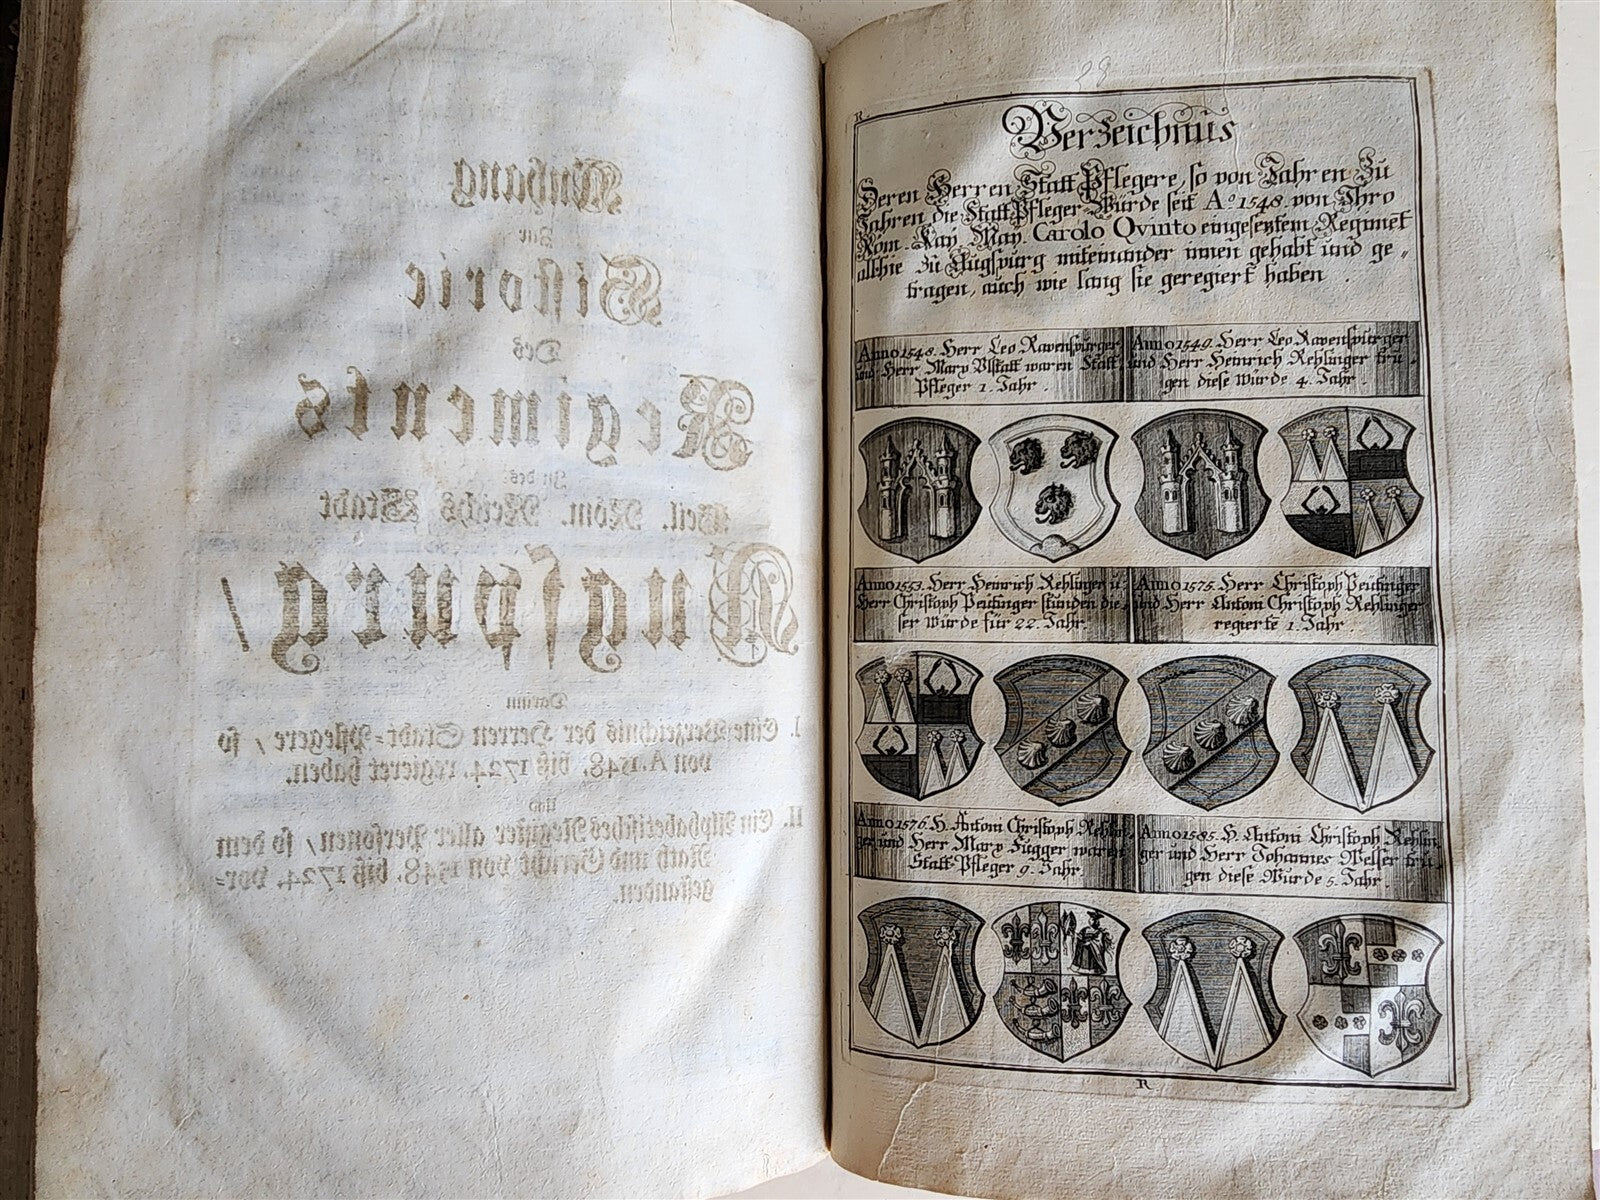 Anhang
Zur
Historie
Deß
Regiments
In des
Heil. Röm. Reichs Stadt
Augspurg/
Darinn
I. Eine Verzeichniß der Herren Stadt-Pflegere / so
von A. 1548. biß 1724. regieret haben.
Und
II. Ein Alphabetisches Register aller Personen / so dem
Rath und Gericht von 1548. biß 1724. vor-
gestanden.
29
R.
Verzeichnüs
Deren Herren Statt Pflegere, so von Jahren Zu
Jahren die Statt Pfleger Würde seit A.º 1548. von Ihro
Röm. Kay. May. Carolo Qvinto eingeseztem Regimet
allhie zu Augspurg miteinander innen gehabt und ge-
tragen, auch wie lang sie geregiert haben.
Anno 1548. Herr Leo Ravenspurger
und Herr Marx Ulstatt waren Statt
Pfleger 1. Jahr.
Anno 1549. Herr Leo Ravenspurger
und Herr Heinrich Rehlinger tru-
gen diese Würde 4. Jahr.
Anno 1553. Herr Heinrich Rehlinger u.
Herr Christoph Peutinger stunden die-
ser Würde für 22. Jahr.
Anno 1575. Herr Christoph Peutinger
und Herr Antoni Christoph Rehlinger
regierte 1. Jahr.
Anno 1576. H. Antoni Christoph Rehlin-
ger und Herr Marx Fugger waren
Statt Pfleger 9. Jahr.
Anno 1585. H. Antoni Christoph Rehlin-
ger und Herr Johannes Welser tru-
gen diese Würde 5. Jahr.
R